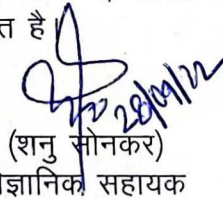 त है।
28/09/22
(शनु सोनकर)
ज्ञानिक सहायक